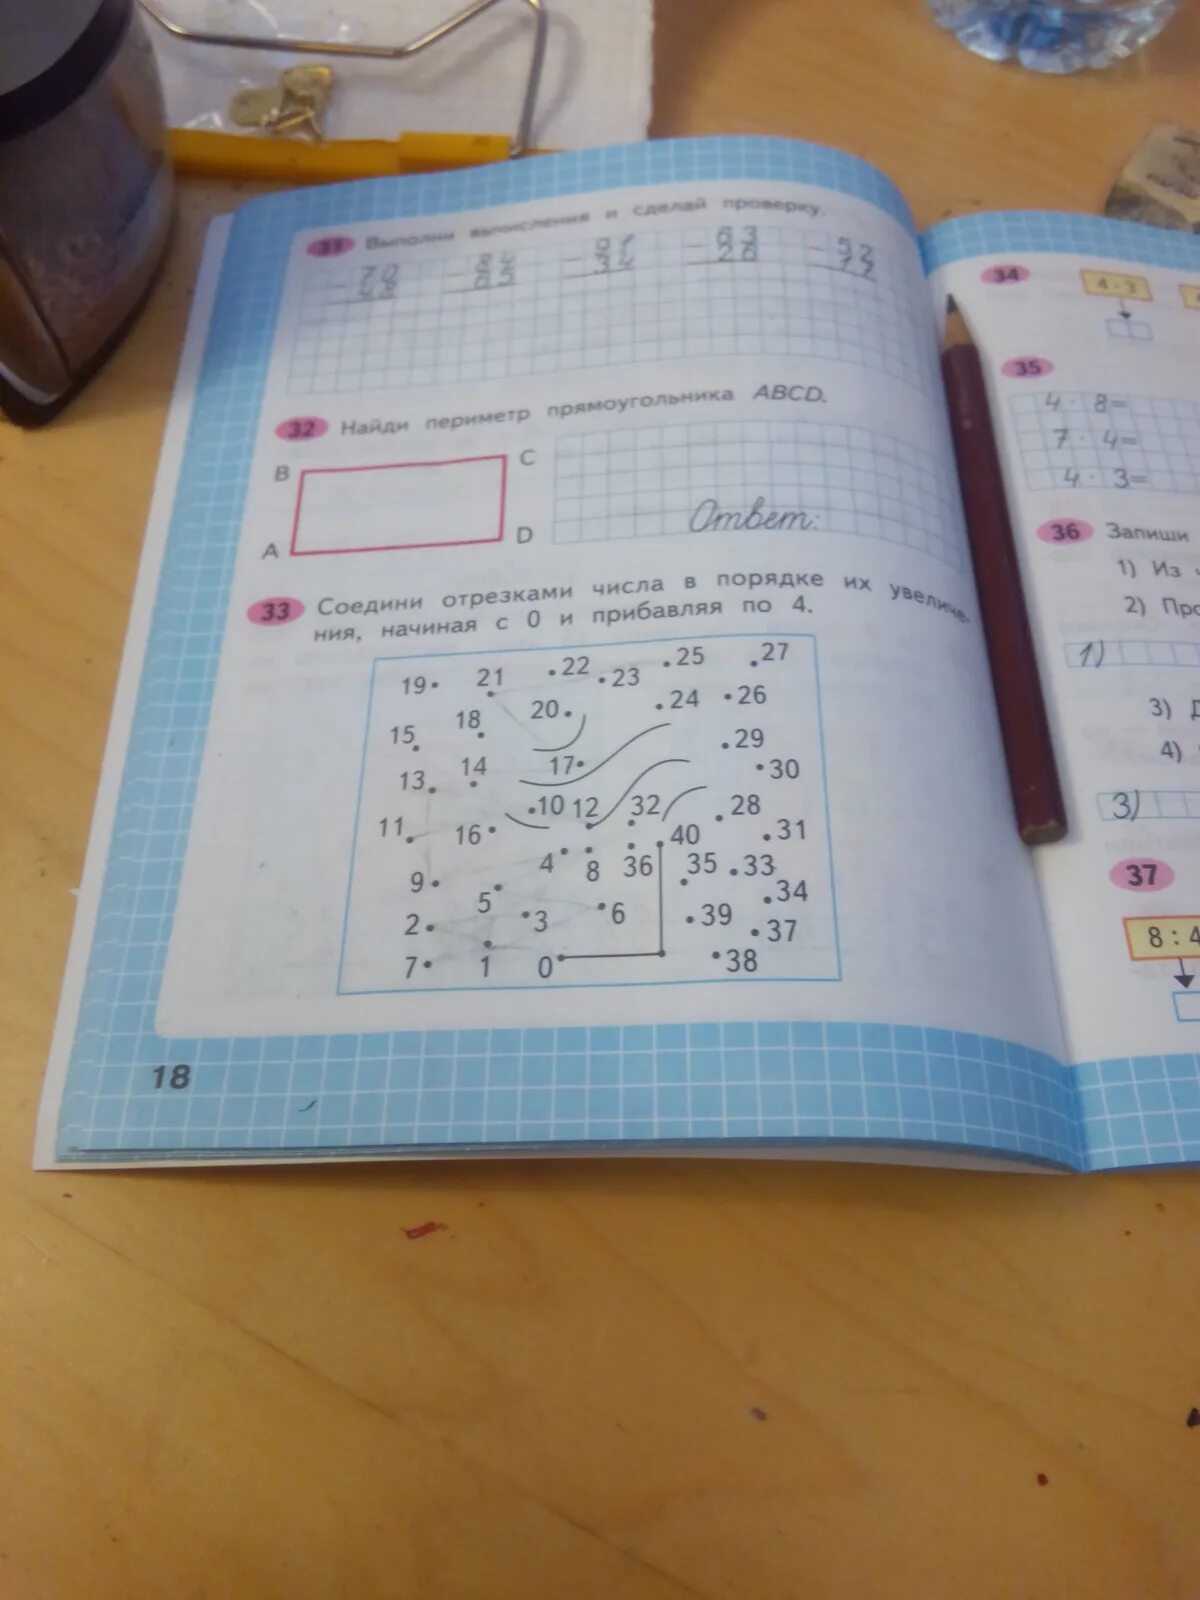 31 Выполни вычисления и сделай проверку.
63 52
32 Найди периметр прямоугольника ABCD.
B C
A D
Ответ:
33 Соедини отрезками числа в порядке их увеличе-
ния, начиная с 0 и прибавляя по 4.
19 21 22 23 25 27
15 18 20 24 26
13 14 17 29 30
11 16 10 12 32 40 28 31
9 4 8 36 35 33
2 5 3 6 39 34 37
7 1 0 38
18
34
4 · 3
35
4 · 8=
7 · 4=
4 · 3=
36 Запиши
1) Из
2)
1)
3)
4)
3)
37
8 : 4